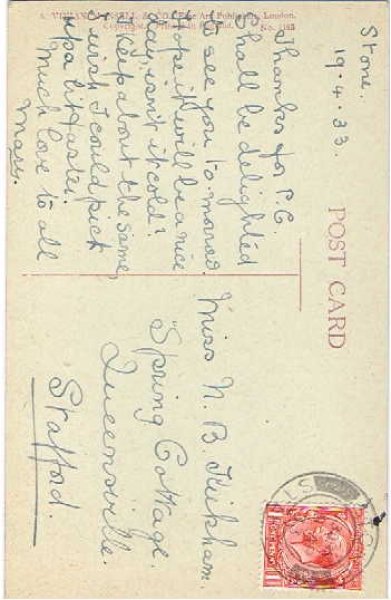 Stone.
19.4.33.
Thanks for P.C.
Shall be delighted
to see you to-morrow.
Hope it will be a nice
day, isn't it cold?
I keep about the same,
I wish I could pick
up a bit faster.
Much love to all
Mary.
POST CARD
Miss N. B.
Spring Cottage.
Queensville.
Stafford.
Fine Art Publishers, London.
Copyright.